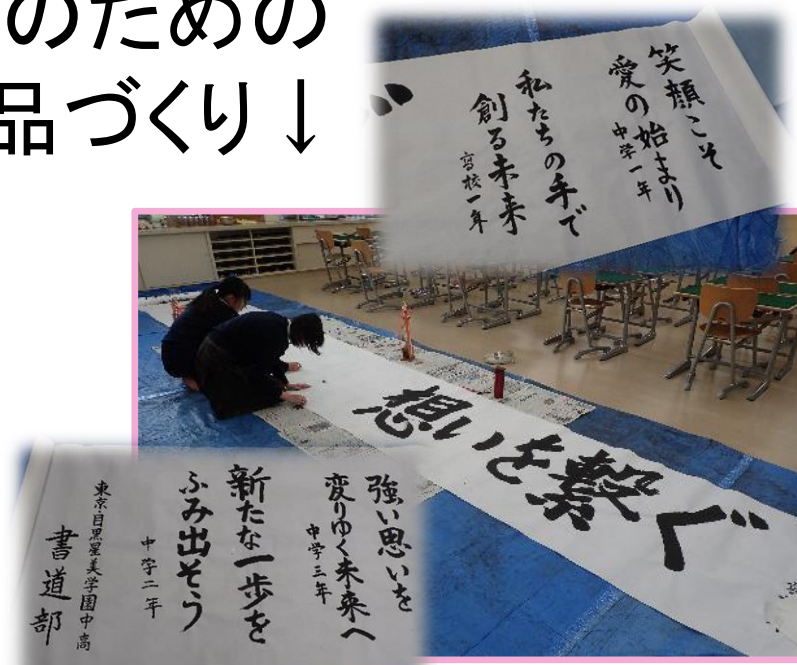 のための
品づくり↓
笑顔こそ
愛の始まり
中学一年
私たちの手で
創る未来
高校一年
想いを繋ぐ
強い思いを
変りゆく未来へ
中学三年
新たな一歩を
ふみ出そう
中学二年
東京・目黒星美学園中高
書道部